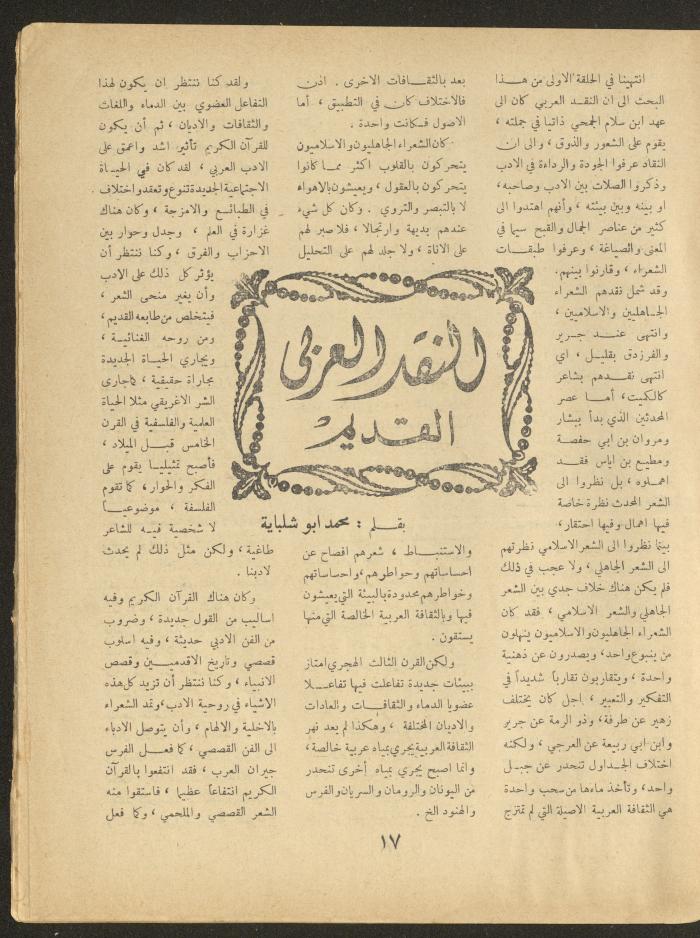 النقد العربي
القديم
بقلم : محمد ابو شلباية
انتهينا في الحلقة الاولى من هذا
البحث الى ان النقد العربي كان الى
عهد ابن سلام الجمحي ذاتيا في جملته ،
يقوم على الشعور والذوق ، والى ان
النقاد عرفوا الجودة والرداءة في الادب
وذكروا الصلات بين الادب وصاحبه،
او بينه وبين بيئته ، وأنهم اهتدوا الى
كثير من عناصر الجمال والقبح سيما في
المعنى والصياغة ، وعرفوا طبقات
الشعراء ، وقارنوا بينهم.
وقد شمل نقدهم الشعراء
الجاهليين والاسلاميين ،
وانتهى عند جرير
والفرزدق بقليل ، اي
انتهى نقدهم بشاعر
كالكميت، أما عصر
المحدثين الذي بدأ ببشار
ومروان بن ابي حفصة
ومطيع بن اياس فقد
اهملوه ، بل نظروا الى
الشعر المحدث نظرة خاصة
فيها اهمال وفيها احتقار،
بينما نظروا الى الشعر الاسلامي نظرتهم
الى الشعر الجاهلي ، ولا عجب في ذلك
فلم يكن هناك خلاف جدي بين الشعر
الجاهلي والشعر الاسلامي ، فقد كان
الشعراء الجاهليون والاسلاميون ينهلون
من ينبوع واحد، ويصدرون عن ذهنية
واحدة ، ويتقاربون تقارباً شديداً في
التفكير والتعبير ، اجل كان يختلف
زهير عن طرفة، وذو الرمة عن جرير
وابن ابي ربيعة عن العرجي ، ولكنه
اختلاف الجداول تنحدر عن جبل
واحد، وتأخذ ماءها من سحب واحدة
هي الثقافة العربية الاصيلة التي لم تمتزج
بعد بالثقافات الاخرى . اذن
فالاختلاف كان في التطبيق ، أما
الاصول فكانت واحدة .
كان الشعراء الجاهليون والاسلاميون
يتحركون بالقلوب اكثر مما كانوا
يتحركون بالعقول ، ويعيشون بالاهواء
لا بالتبصر والتروي . وكان كل شيء
عندهم بديهة وارتجالا ، فلا صبر لهم
على الاناة ، ولا جلد لهم على التحليل
والاستنباط ، شعرهم افصاح عن
احساساتهم وخواطرهم ، واحساساتهم
وخواطرهم محدودة بالبيئة التي يعيشون
فيها وبالثقافة العربية الخالصة التي منها
يستقون .
ولكن القرن الثالث الهجري امتاز
ببيئات جديدة تفاعلت فيها تفاعلا
عضويا الدماء والثقافات والعادات
والاديان المختلفة ، وهكذا لم يعد نهر
الثقافة العربية يجري بمياه عربية خالصة ،
وانما اصبح يجري بمياه أخرى تنحدر
من اليونان والرومان والسريان والفرس
والهنود الخ .
ولقد كنا ننتظر ان يكون لهذا
التفاعل العضوي بين الدماء واللغات
والثقافات والاديان ، ثم أن يكون
للقرآن الكريم تأثير اشد واعمق على
الادب العربي ، لقد كان في الحياة
الاجتماعية الجديدة تنوع وتعقد واختلاف
في الطبائع والامزجة ، وكان هناك
غزارة في العلم ، وجدل وحوار بين
الاحزاب والفرق ، وكنا ننتظر أن
يؤثر كل ذلك على الادب
وأن يغير منحى الشعر ،
فيتخلص من طابعه القديم ،
ومن روحه الغنائية ،
ويجاري الحياة الجديدة
مجاراة حقيقية ، كما جارى
الشر الاغريقي مثلا الحياة
العلمية والفلسفية في القرن
الخامس قبل الميلاد ،
فأصبح تمثيليا يقوم على
الفكر والحوار ، كما تقوم
الفلسفة ، موضوعياً
لا شخصية فيه للشاعر
طاغية ، ولكن مثل ذلك لم يحدث
لادبنا .
وكان هناك القرآن الكريم وفيه
اساليب من القول جديدة ، وضروب
من الفن الادبي حديثة ، وفيه اسلوب
قصصي وتاريخ الاقدمين وقصص
الانبياء ، وكنا ننتظر أن تزيد كل هذه
الاشياء في روحية الادب، وتمد الشعراء
بالاخلية والالهام ، وأن يتوصل الادباء
الى الفن القصصي ، كما فعل الفرس
جيران العرب ، فقد انتفعوا بالقرآن
الكريم انتفاعاً عظيما ، فاستقوا منه
الشعر القصصي والملحمي ، وكما فعل
١٧